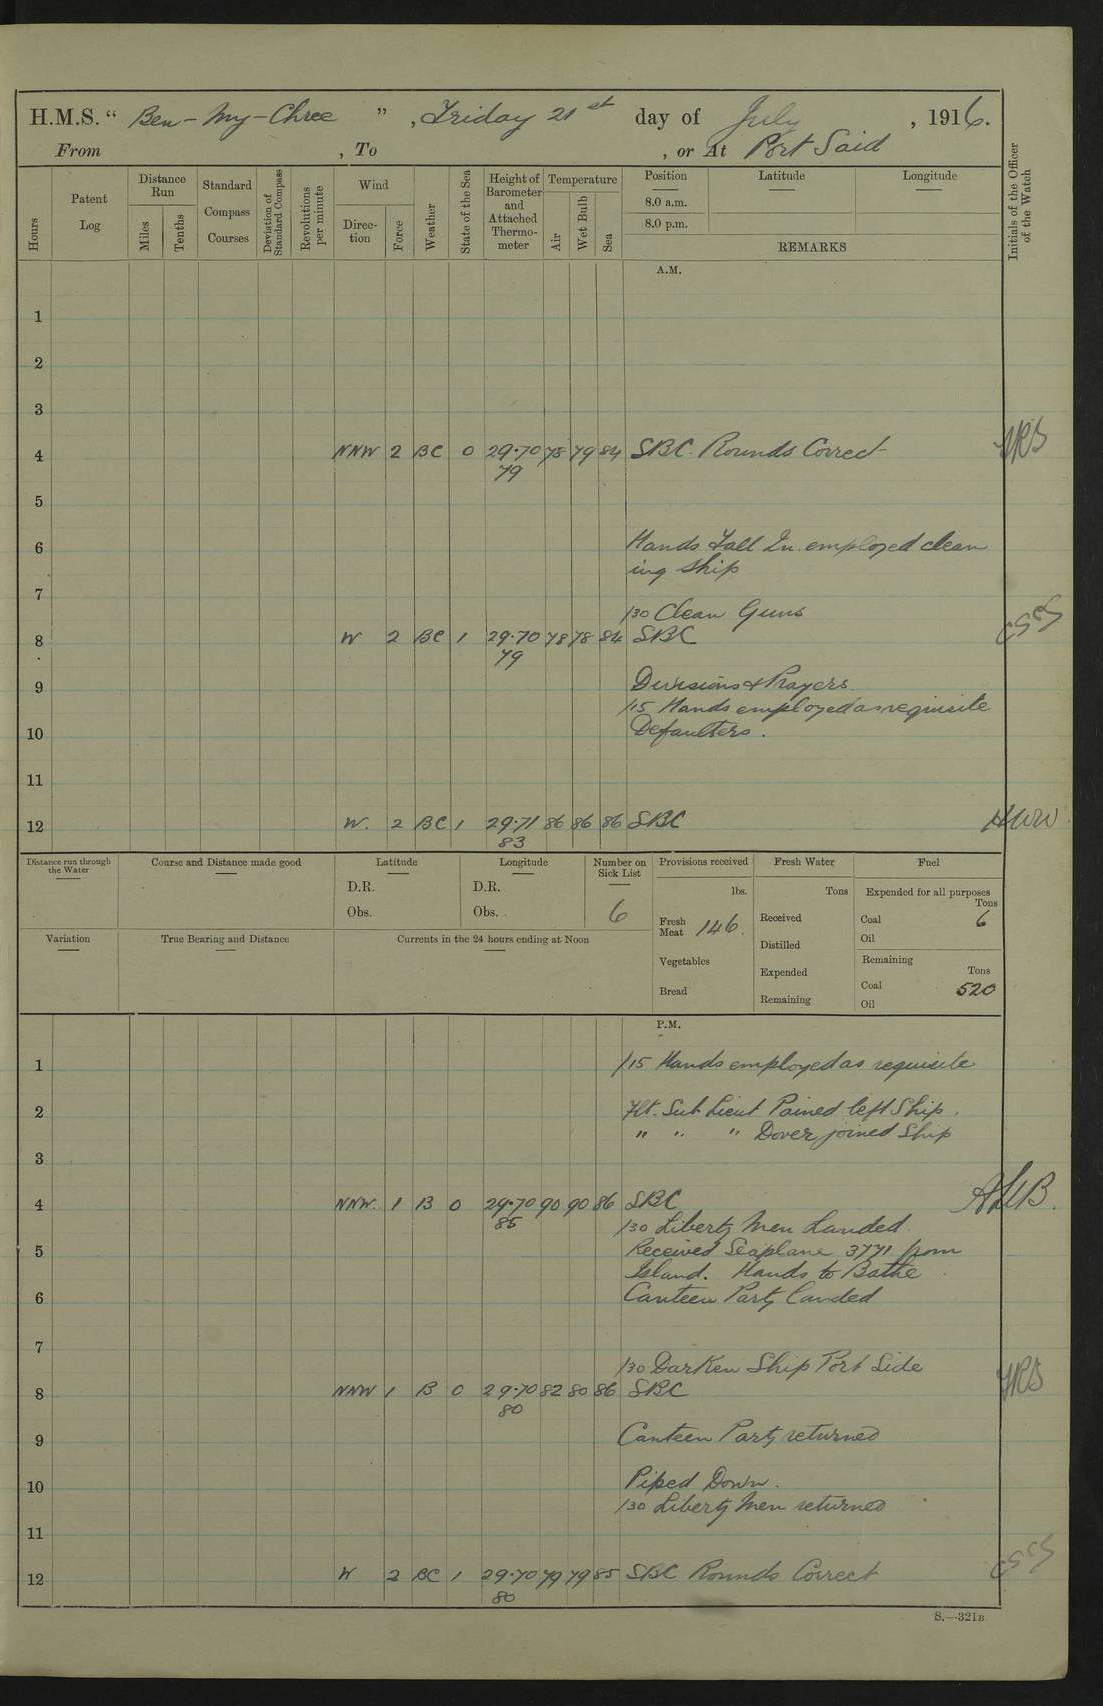 H.M.S. “ Ben-My-Chree ” , Friday 21st day of July , 1916.
From , To , or At Port Said
Hours
Patent Log
Distance Run
Miles
Tenths
Standard Compass Courses
Deviation of Standard Compass
Revolutions per minute
Wind
Direction
Force
Weather
State of the Sea
Height of Barometer and Attached Thermometer
Temperature
Air
Wet Bulb
Sea
Position
8.0 a.m.
8.0 p.m.
Latitude
Longitude
REMARKS
Initials of the Officer of the Watch
A.M.
1
2
3
4 NNW 2 BC 0 29.70 78 79 84 SBC. Rounds Correct
79
5
6 Hands Fall In. employed clean
ing Ship
7
/30 Clean Guns
8 W 2 BC 1 29.70 78 78 84 SBC
79
9 Divisions & Prayers
/15 Hands employed as requisite
10 Defaulters.
11
12 W. 2 BC 1 29.71 86 86 86 SBC HWW
83
Distance run through the Water
Course and Distance made good
Latitude
D.R.
Obs.
Longitude
D.R.
Obs.
Number on Sick List
6
Provisions received
lbs.
Fresh Meat 146.
Vegetables
Bread
Fresh Water
Tons
Received
Distilled
Expended
Remaining
Fuel
Expended for all purposes
Tons
Coal 6
Oil
Remaining
Tons
Coal 520
Oil
Variation
True Bearing and Distance
Currents in the 24 hours ending at Noon
P.M.
1 /15 Hands employed as requisite
2 Flt. Sub Lieut Pained left Ship.
" " " Dover joined Ship
3
4 NNW. 1 B 0 29.70 90 90 86 SBC
85
/30 Liberty Men Landed.
5 Received Seaplane 3771 from
Island. Hands to Bathe
6 Canteen Party landed
7
/30 Darken Ship Port Side
8 NNW 1 B 0 29.70 82 80 86 SBC
80
9 Canteen Party returned
10 Piped Down.
/30 Liberty Men returned
11
12 W 2 BC 1 29.70 79 79 85 SBC Rounds Correct
80
S.—321B